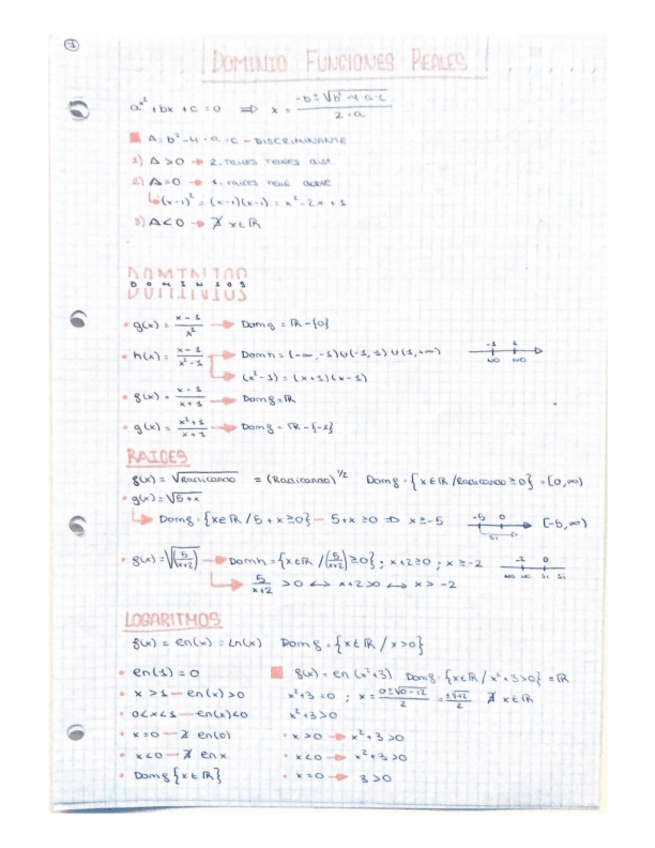 1
DOMINIO FUNCIONES REALES
ax² + bx + c = 0 ⇒ x = (-b ± √(b² - 4·a·c)) / (2·a)
Δ = b² - 4·a·c - DISCRIMINANTE
1) Δ > 0 → 2 raices reales dist.
2) Δ = 0 → 1 raices real doble
(x-1)² = (x-1)(x-1) = x² - 2x + 1
3) Δ < 0 → ∄ x ∈ ℝ
DOMINIOS
g(x) = (x-1)/x² → Dom g = ℝ - {0}
h(x) = (x-1)/(x²-1) → Dom h = (-∞, -1) ∪ (-1, 1) ∪ (1, +∞) -1 1 NO NO
(x²-1) = (x+1)(x-1)
g(x) = (x-1)/(x+1) → Dom g = ℝ
g(x) = (x²+1)/(x+1) → Dom g = ℝ - {-1}
RAICES
f(x) = √Radicando = (Radicando)^1/2 Dom f = {x ∈ ℝ / Radicando ≥ 0} = [0, ∞)
g(x) = √(5+x)
Dom g = {x ∈ ℝ / 5 + x ≥ 0} - 5+x ≥ 0 ⇒ x ≥ -5 -5 0 Si [-5, ∞)
g(x) = √(5/(x+2)) → Dom h = {x ∈ ℝ / (5/(x+2)) ≥ 0} ; x+2 ≥ 0 ; x ≥ -2 -2 0 NO NO Si Si
5/(x+2) > 0 ↔ x+2 > 0 ↔ x > -2
LOGARITMOS
f(x) = en(x) = Ln(x) Dom f = {x ∈ ℝ / x > 0}
en(1) = 0
x > 1 - en(x) > 0
0 < x < 1 - en(x) < 0
x = 0 - ∄ en(0)
x < 0 - ∄ en x
Dom f {x ∈ ℝ}
f(x) = en (x²+3) Dom f = {x ∈ ℝ / x²+3 > 0} = ℝ
x²+3 = 0 ; x = (0 ± √(0-12))/2 = (±√-12)/2 ∄ x ∈ ℝ
x²+3 > 0
x > 0 → x²+3 > 0
x < 0 → x²+3 > 0
x = 0 → 3 > 0